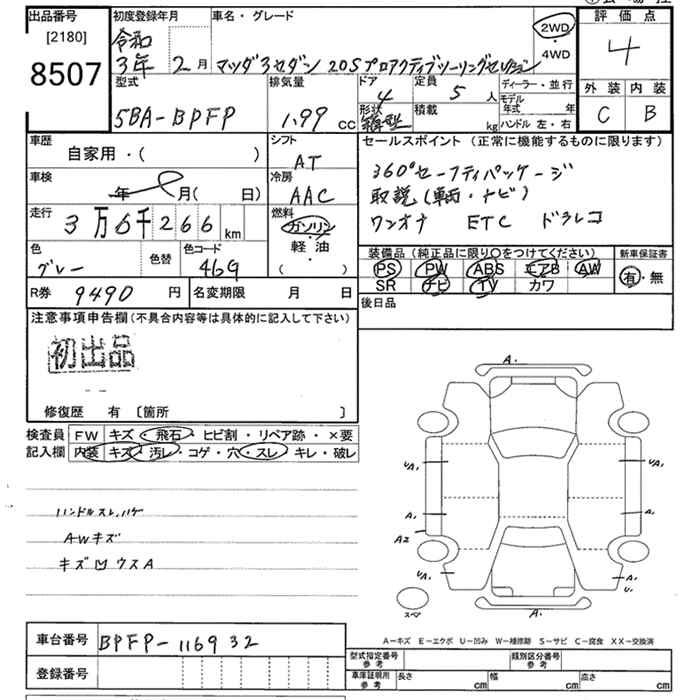 出品番号
[2180]
8507
初度登録年月
令和
3年 2月
車名・グレード
マツダ3セダン 20Sプロアクティブツーリングセレクション
2WD
・
4WD
評価点
4
外装 内装
C B
型式
5BA-BPFP
排気量
1.99 CC
ドア
4
形状
箱型
定員
5 人
積載
kg
ディーラー・並行
モデル
年式 年
ハンドル 左・右
車歴
自家用・( )
シフト
AT
車検
年 月( 日)
冷房
AAC
走行
3万6千266km
燃料
ガソリン
・
軽・油
( )
色
グレー
色替
色コード
46G
R券 9490 円
名変期限 月 日
セールスポイント (正常に機能するものに限ります)
360°セーフティパッケージ
取説(車両・ナビ)
ワンオナ ETC ドラレコ
装備品(純正品に限り○をつけてください)
PS PW ABS エアB AW
SR ナビ TV カワ
新車保証書
有・無
後日品
注意事項申告欄(不具合内容等は具体的に記入して下さい)
初出品
修復歴 有 〔箇所 〕
検査員
記入欄
FW キズ・飛石・ヒビ割・リペア跡・×要
内装 キズ・汚レ・コゲ・穴・スレ・キレ・破レ
ハンドルスレ、ハゲ
AWキズ
キズ凹ウスA
A.
UA, UA,
A, A,
A2
UA, A,
U,
スペア
A.
A-キズ E-エクボ U-凹み W-補修跡 S-サビ C-腐食 XX-交換済
車台番号 BPFP-116932
登録番号
型式指定番号
参考
類別区分番号
参考
車庫証明用
参考
長さ cm 幅 cm 高さ cm